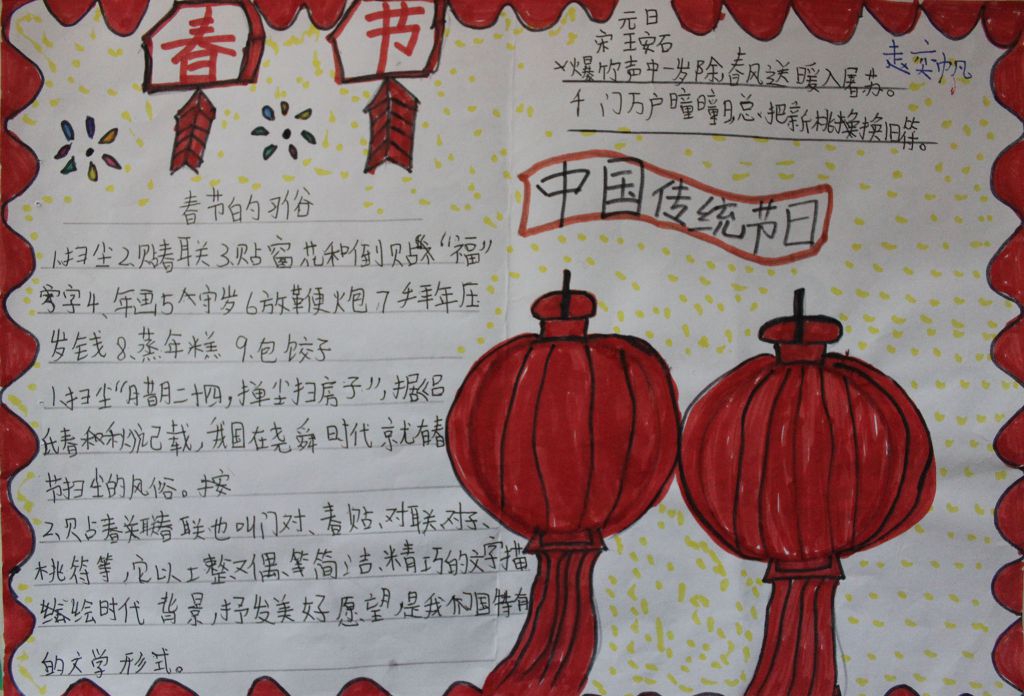 春节
春节的习俗
1.扫尘2.贴春联3.贴窗花和倒贴“福”
字4、年画5、守岁6放鞭炮7手拜年压
岁钱8、蒸年糕9.包饺子
1.扫尘“腊月二十四,掸尘扫房子”,据《吕
氏春秋》记载,我国在尧舜时代就有春
节扫尘的风俗。按
2、贴春联春联也叫门对、春贴、对联、对子、
桃符等,它以工整对偶、简洁、精巧的文字描
绘时代背景,抒发美好愿望,是我们国特有
的文学形式。
元日
宋王安石
爆竹声中一岁除,春风送暖入屠苏。
千门万户曈曈日总、把新桃换旧符。
中国传统节日